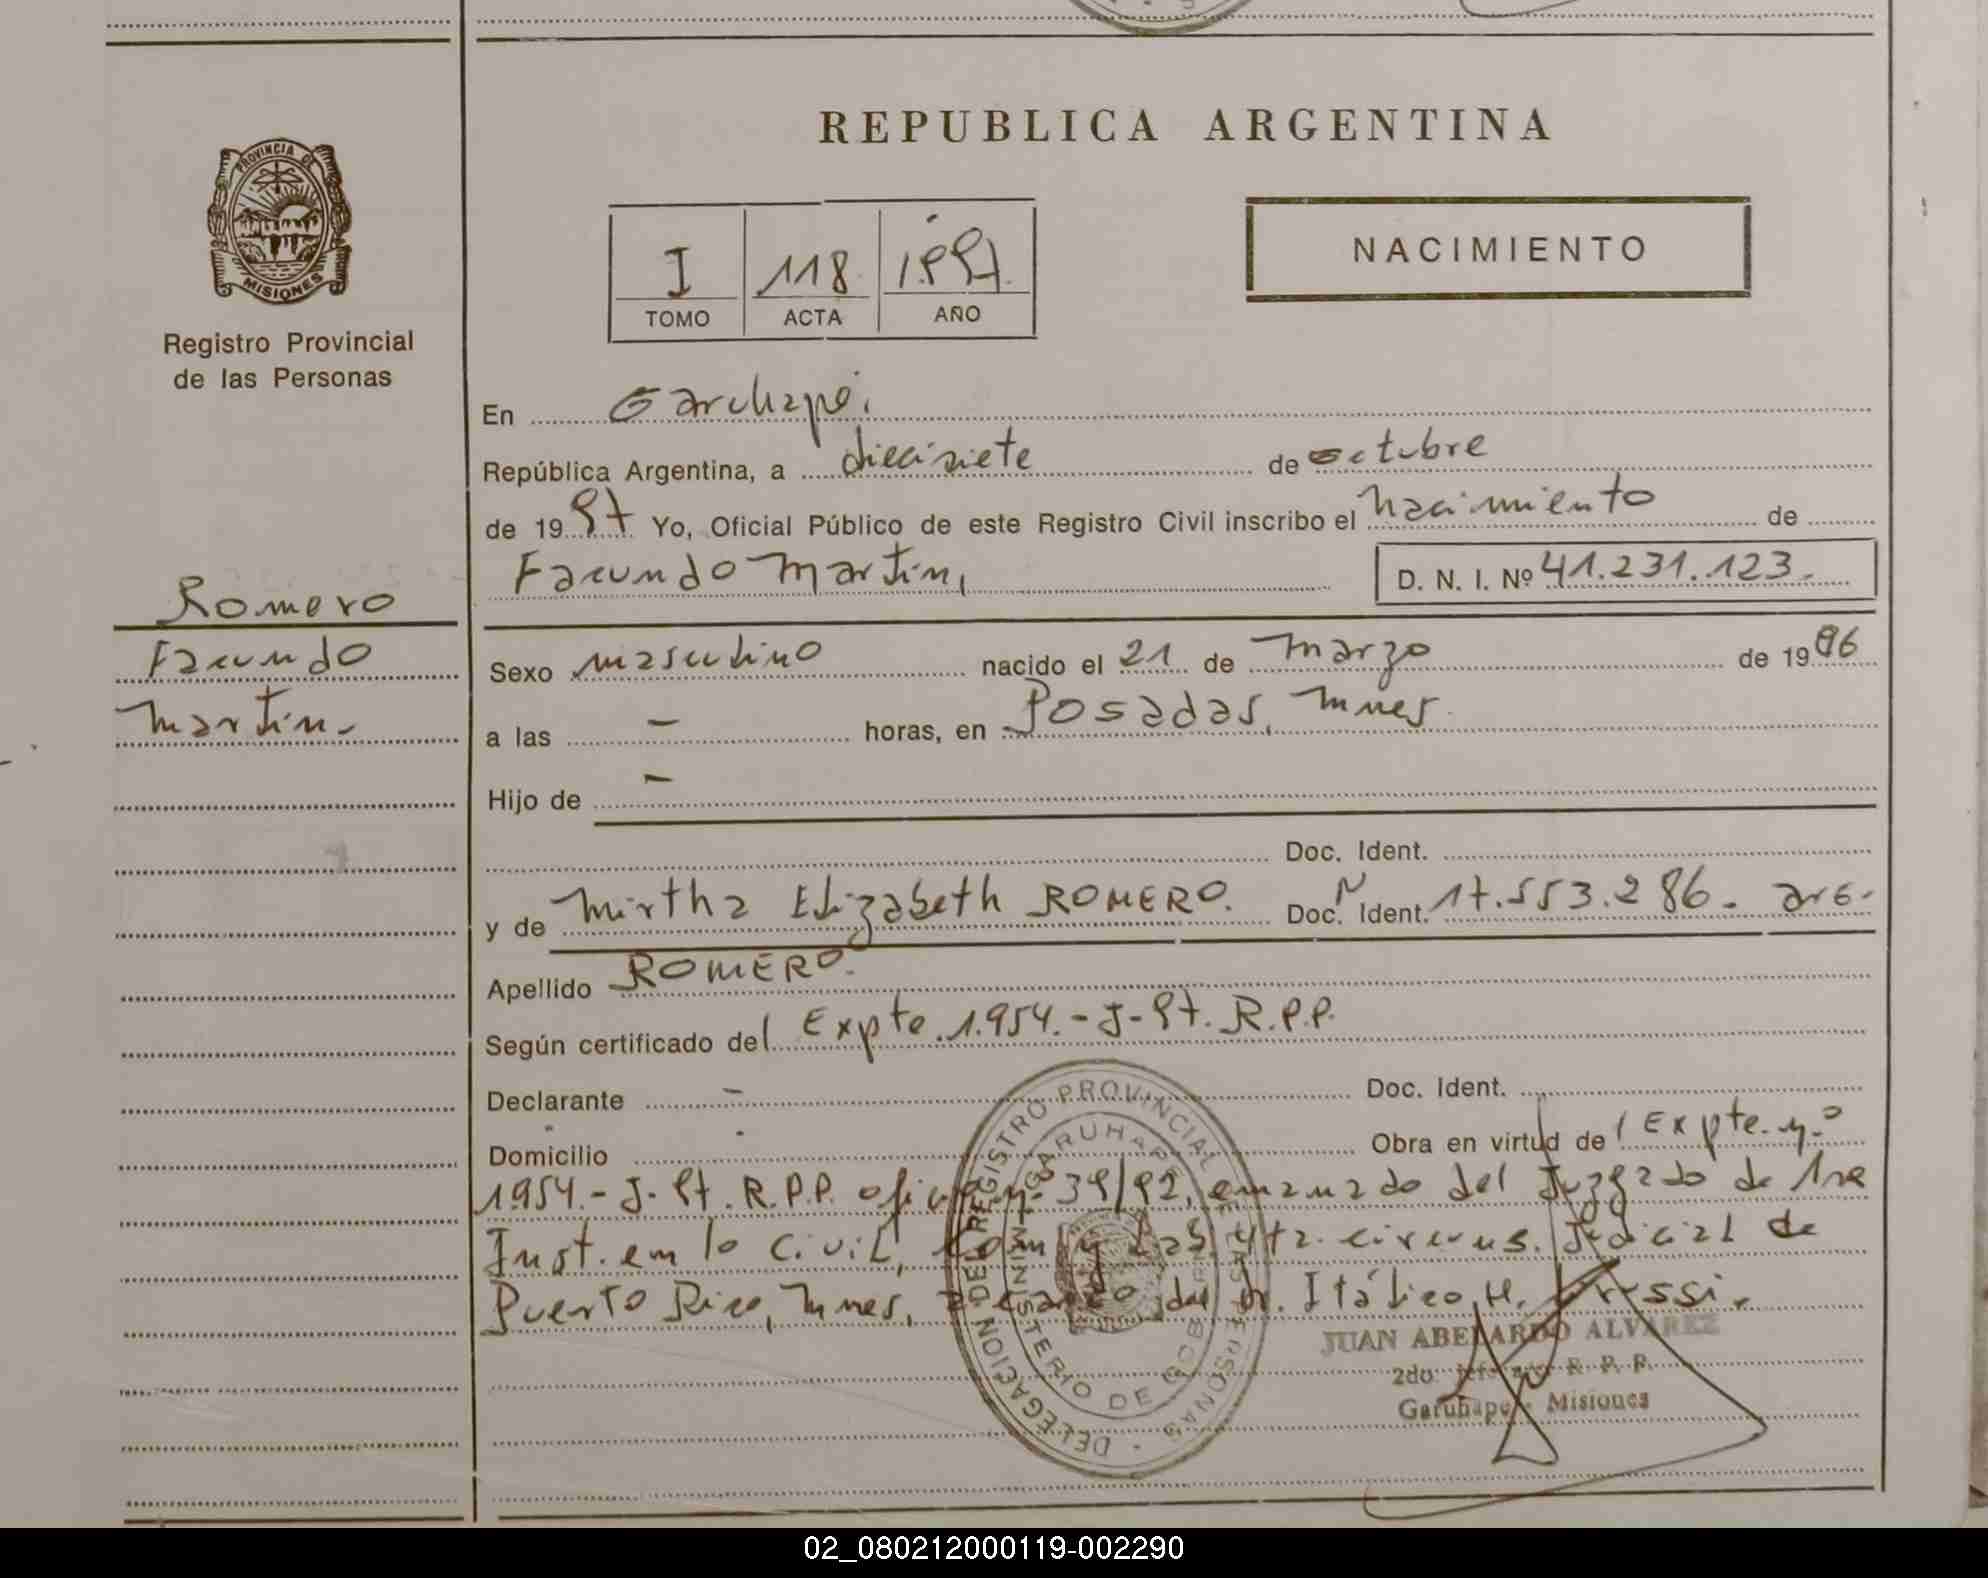 REPUBLICA ARGENTINA
PROVINCIA DE
MISIONES
Registro Provincial
de las Personas
I 118 1.997.
TOMO ACTA AÑO
NACIMIENTO
En Garuhapé.
República Argentina, a diecisiete de octubre
de 1997 Yo, Oficial Público de este Registro Civil inscribo el nacimiento de
Facundo Martin, D. N. I. Nº 41.231.123.
Romero
Facundo
Martin.-
Sexo masculino nacido el 21 de Marzo de 1996
a las - horas, en Posadas, Mnes.
Hijo de -
Doc. Ident.
y de Mirtha Elizabeth ROMERO. Doc. Ident. Nº 17.553.286.- arg.
Apellido ROMERO.
Según certificado del Expte. 1.954.-J-97. R.P.P.
Declarante - Doc. Ident.
Domicilio Obra en virtud de Expte. nº
1.954.-J-97. R.P.P. oficio nº 39/92, emanado del Juzgado de 1ra
Inst. en lo Civil, Com. y Lab. 4ta. circuns. Judicial de
Puerto Rico, Mnes, a cargo del Dr. Itálico H.
JUAN ABELARDO ALVAREZ
2do. Jefe R. P. P.
Garuhape - Misiones
DELEGACION DEL REGISTRO PROVINCIAL DE LAS PERSONAS
GARUHAPE
MINISTERIO DE GOBIERNO
02_080212000119-002290